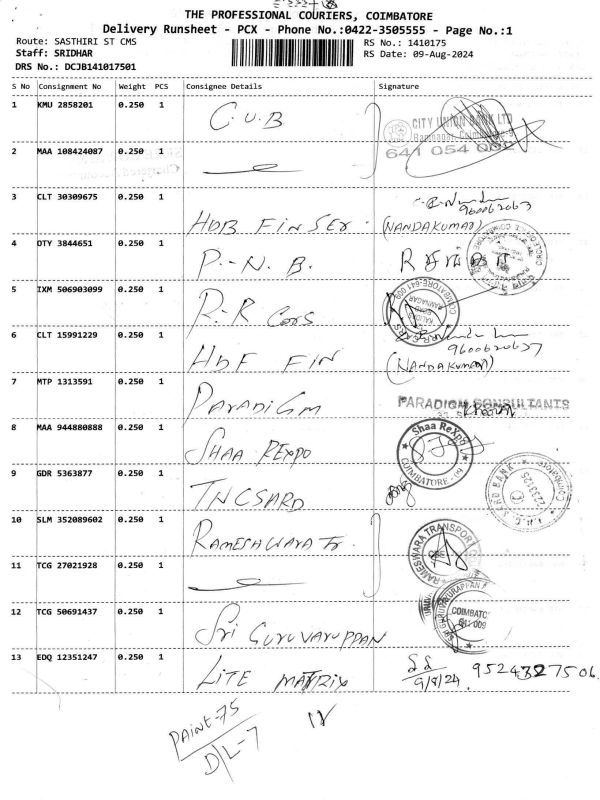 THE PROFESSIONAL COURIERS, COIMBATORE
Delivery Runsheet - PCX - Phone No.:0422-3505555 - Page No.:1
Route: SASTHIRI ST CMS
RS No.: 1410175
Staff: SRIDHAR
RS Date: 09-Aug-2024
DRS No.: DCJB141017501
S No Consignment No Weight PCS Consignee Details Signature
1 KMU 2858201 0.250 1 C.U.B
CITY UNION BANK LTD
Ramnagar, Coimbatore-9
641 054 002
2 MAA 108424087 0.250 1
3 CLT 30309675 0.250 1 HDB FINSER.
9600620637
(NANDAKUMAR)
4 OTY 3844651 0.250 1 P.N.B.
5 IXM 506903099 0.250 1 R.R Cars
RR CARS
KALIDAS ROAD
RAMNAGAR
COIMBATORE-641 009
6 CLT 15991229 0.250 1 HDF FIN
9600620637
(NANDAKUMAR)
7 MTP 1313591 0.250 1 Paradigm
PARADIGM CONSULTANTS
8 MAA 944880888 0.250 1 SHAA REXPO
Shaa ReXpo
COIMBATORE - 09
9 GDR 5363877 0.250 1 TNCSARD
10 SLM 352089602 0.250 1 RAMESHWARA Tr.
RAMESWARA TRANSPORT
11 TCG 27021928 0.250 1
12 TCG 50691437 0.250 1 Sri GURUVARUPPAN
COIMBATO
641 009
13 EDQ 12351247 0.250 1 LITE MATRIX
9/8/24. 9524327506
PAINT-75
D/L-7